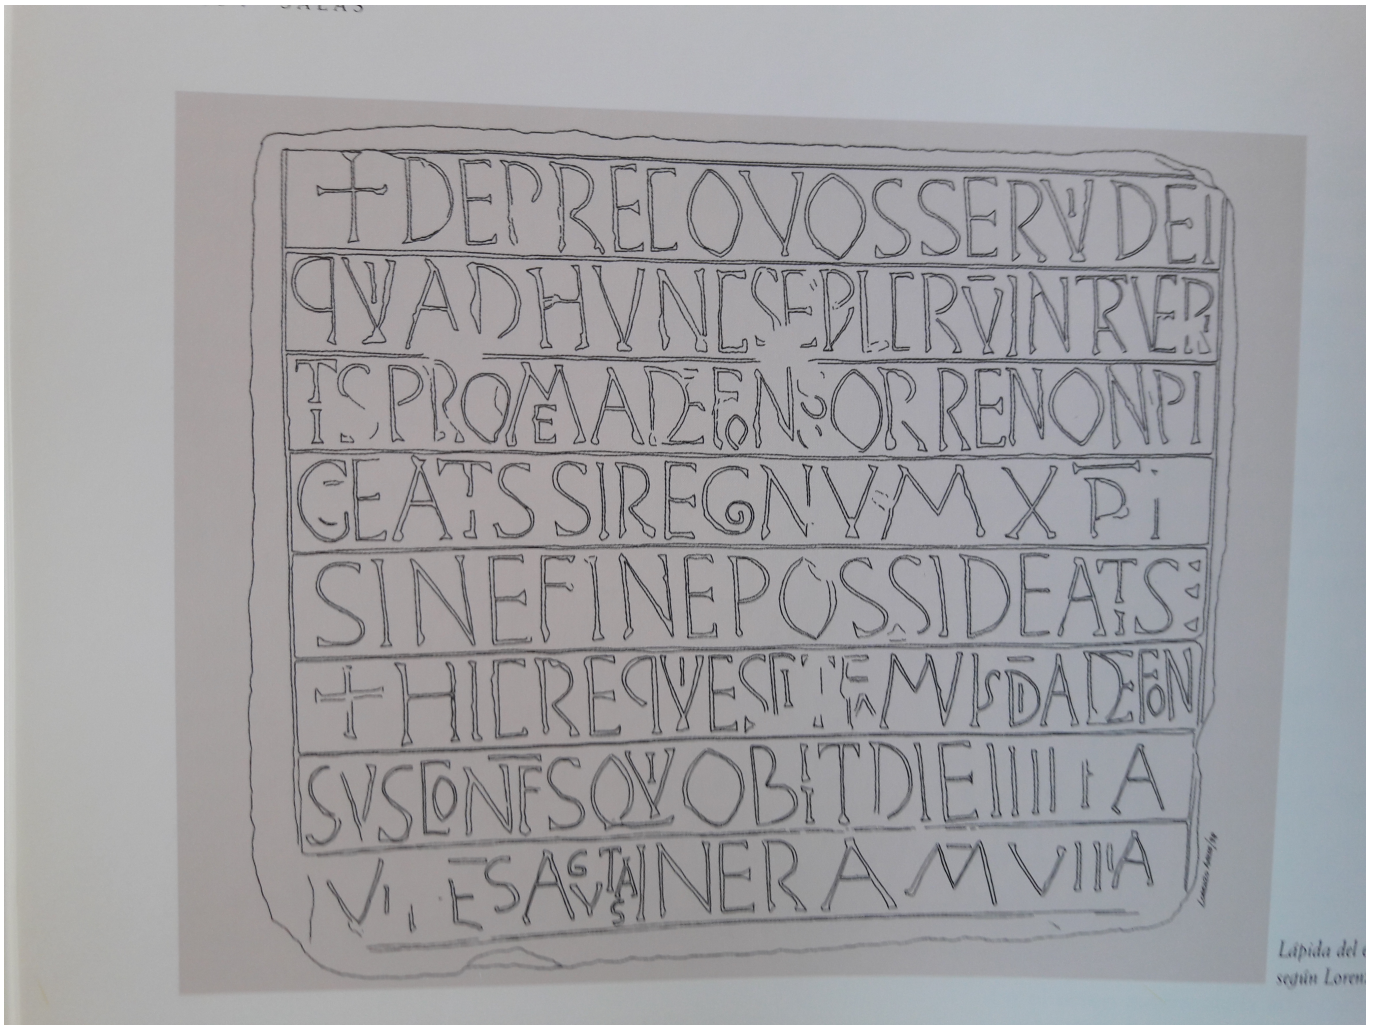 SALAS
+ DEPRECOVOS SERVI DEI
QVI AD HVNC SEPLCRV̄ INTRVERI
TIS PRO ME ADEFONSO ORRE NON PI
GEATS SI REGNVM XP̄I
SINE FINE POSSIDEATIS
+ HIC REQVIESIT FAMVS D̄I ADEFON
SVS CONFS QVI OBIIT DIE IIII A
ES AGVSTAS IN ERA M̄ VIIIA
Lápida del
según Loren